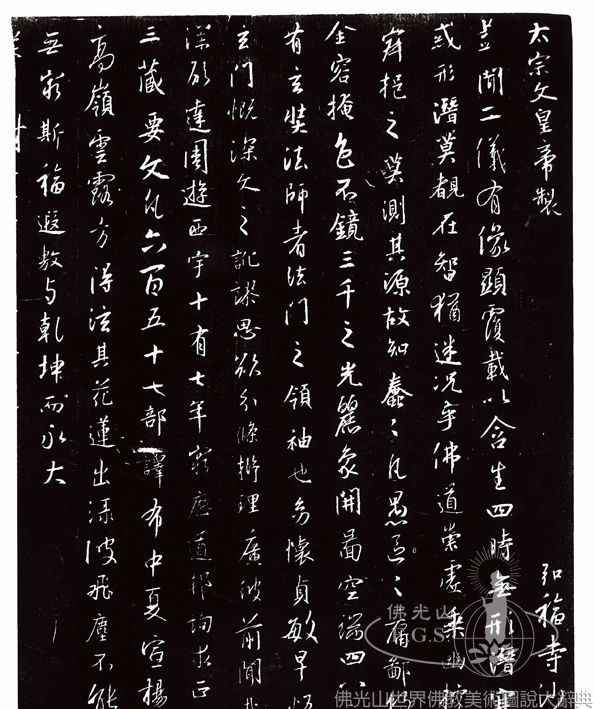 太宗文皇帝製 弘福寺沙
蓋聞二儀有像顯覆載以含生四時無形潛寒
或形潛莫覩在智猶迷況乎佛道崇虛乘幽控
宰挹之莫測其源故知蠢〻凡愚區〻庸鄙
金容掩色不鏡三千之光麗象開圖空端四八
有玄奘法師者法門之領袖也幼懷貞敏早悟
玄門慨深文之訛謬思欲分條析理廣彼前聞
深願達周遊西宇十有七年窮歷道邦詢求正
三藏要文凡六百五十七部譯布中夏宣楊
高嶺雲露方得泫其花蓮出淥波飛塵不能
無窮斯福遐敷与乾坤而永大
佛光山
G.S
佛光山世界佛教美術圖說大辭典